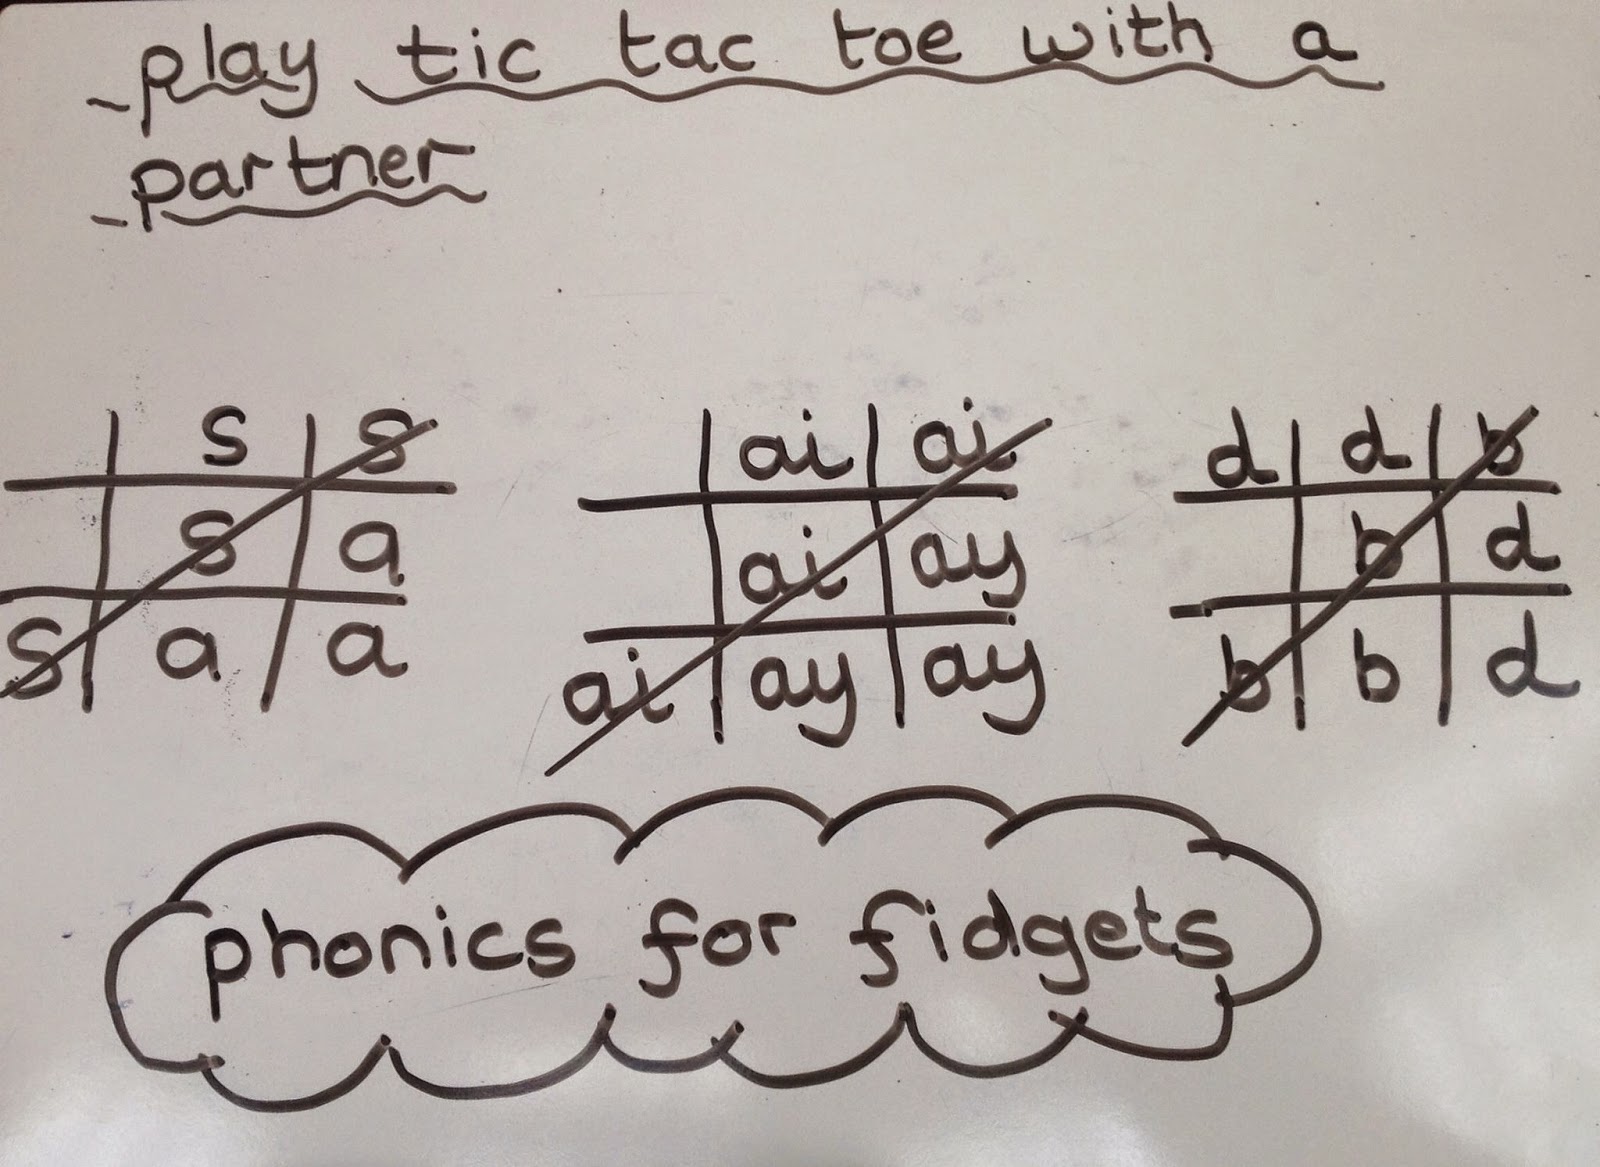 play tic tac toe with a
partner
s s
s a
s a a
ai ai
ai ay
ai ay ay
d d b
b d
b b d
phonics for fidgets